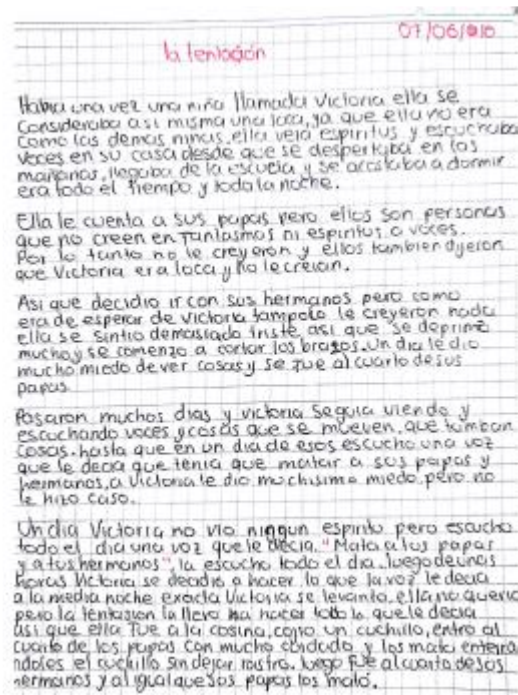 07/06/010
la tentación
Habia una vez una niña llamada Victoria ella se
consideraba asi misma una loca, ya que ella no era
como las demas ninas, ella veia espiritus y escuchaba
voces en su casa desde que se despertaba en las
mañanas, llegaba de la escuela y se acostaba a dormir
era todo el tiempo y toda la noche.
Ella le cuenta a sus papas pero ellos son personas
que no creen en fantasmas ni espiritus o voces.
Por lo tanto no le creyeron y ellos tambien dijeron
que Victoria era loca y no le creian.
Asi que decidio ir con sus hermanos pero como
era de esperar de Victoria tampoco le creyeron nada
ella se sintio demasiado triste, asi que se deprime
mucho y se comenzo a cortar los brazos. Un dia le dio
mucho miedo de ver cosas y se fue al cuarto de sus
papas
Pasaron muchos dias y victoria seguia viendo y
escuchando voces y cosas que se mueven, que tumban
cosas. hasta que en un dia de esos escucho una voz
que le decia que tenia que matar a sus papas y
hermanos, a Victoria le dio muchisimo miedo. pero no
le hizo caso.
Un dia Victoria no vio ningun espiritu pero escucho
todo el dia una voz que le decia. "Mata a tus papas
y a tus hermanos", la escucho todo el dia. luego de unas
horas Victoria se decidio a hacer lo que la voz le decia
a la media noche exacta Victoria se levanto, ella no queria
pero la tentasion la llevo ha hacer todo lo que le decia
asi que ella fue a la cosina, cojio un cuchillo, entro al
cuarto de los papas con mucho cuidado y los mato enterra
ndoles el cuchillo sin dejar rastro. luego fue al cuarto de sus
hermanos y al igual que sus papas los mató.